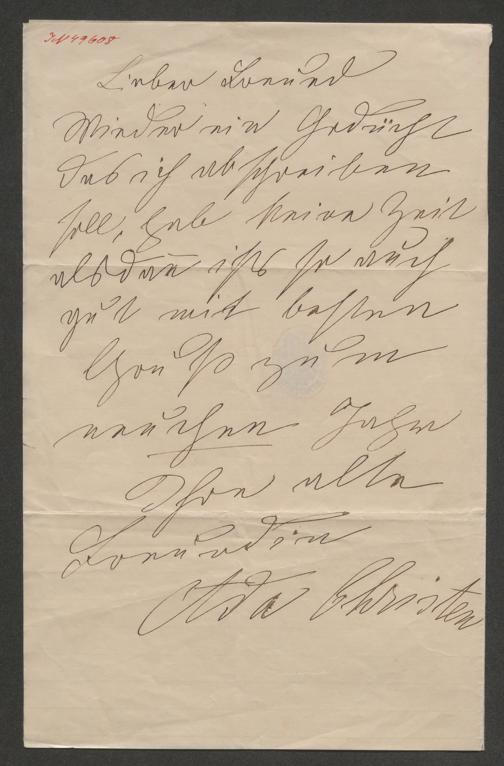 IN 49608
Lieber Freund
Wieder ein Gedicht
das ich abschreiben
soll, hab keine Zeit
alsdan ists so auch
gut mit besten
Gruß zum
neuchen Jahre
Ihre alte
Freundin
Ada Christen